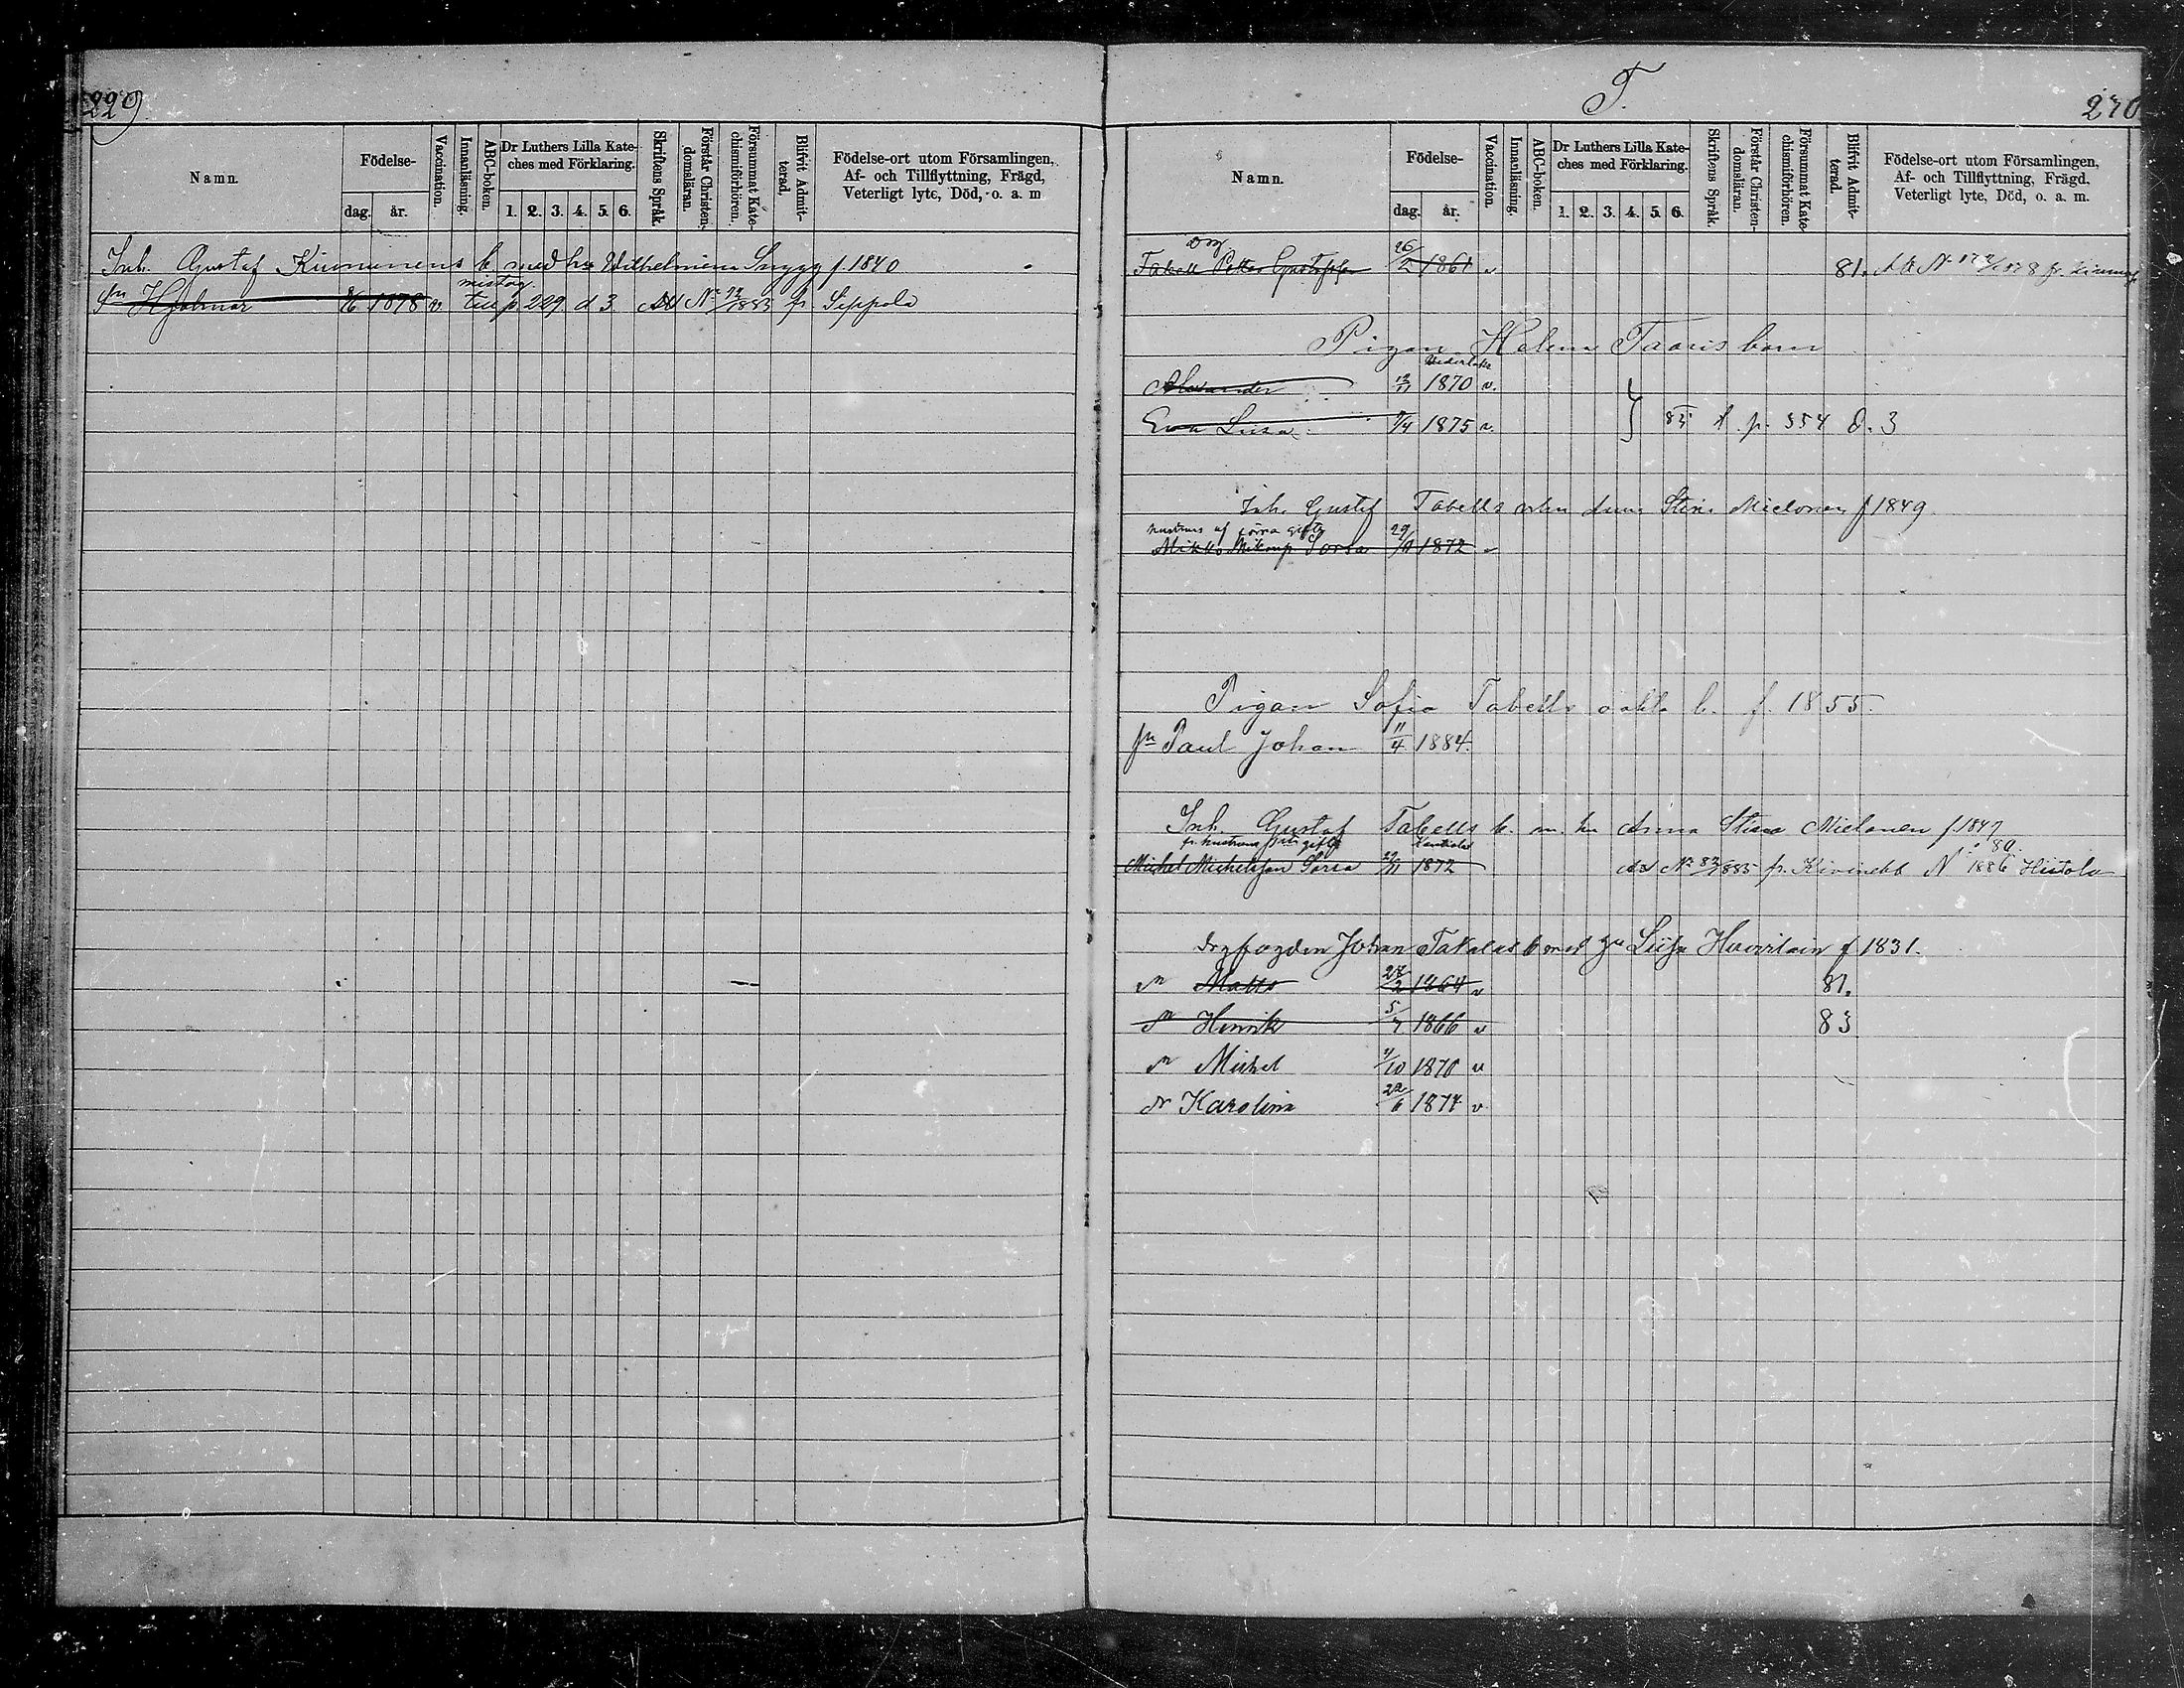 229
Namn.
Födelse-
dag. år.
Vaccination.
Innanläsning.
ABC-boken.
Dr Luthers Lilla Kate-
ches med Förklaring.
1. 2. 3. 4. 5. 6.
Skriftens Språk.
Förstår Christen-
domsläran.
Försummat Kate-
chismiförhören.
Blifvit Admit-
terad.
Födelse-ort utom Församlingen,
Af- och Tillflyttning, Frägd,
Veterligt lyte, Död, o. a. m
Inh. Gustaf Kinnunens b. med hu Wilhelmiena Snygg f. 1840
mistag.
Sn Hjalmar 1878 v. till p. 229. d 3. Att No 92/1883 fr. Sippola
T.
270
Namn.
Födelse-
dag. år.
Vaccination.
Innanläsning.
ABC-boken.
Dr Luthers Lilla Kate-
ches med Förklaring.
1. 2. 3. 4. 5. 6.
Skriftens Språk.
Förstår Christen-
domsläran.
Försummat Kate-
chismiförhören.
Blifvit Admit-
terad.
Födelse-ort utom Församlingen,
Af- och Tillflyttning, Frägd,
Veterligt lyte, Död, o. a. m.
Drg
Tabell Petter Gustafss 26/2 1861 v 81.
Pigan Helena Taaris barn
Alexander 12/11 1870 v.
Eva Liisa 9/4 1875 v. 85 p. 354 d. 3
Inh. Gustaf Tabells och Anna Stina Mielonen f 1849
hustruns af förra gifte
Mikko Mikonp. Sorsa 29/11 1872 v
Pigan Sofia Tabells oäkta b. f. 1855.
sn Paul Johan 11/4 1884.
Inh. Gustaf Tabells b. m. hu Anna Stina Mielonen f. 1849
fr. hustruns gifte
Michel Michelsson Sorsa 29/11 1872 Att No 83/1885 fr. Kivineb N 80/1886 Hiitola
Drgfogden Johan Takalas b med hu Liisa Huovilain f 1831.
sn Matts 24/2 1864 v 81.
sn Henrik 5/7 1866 v 83
sn Michel 4/10 1870 v
dr Karolina 22/6 1874 v